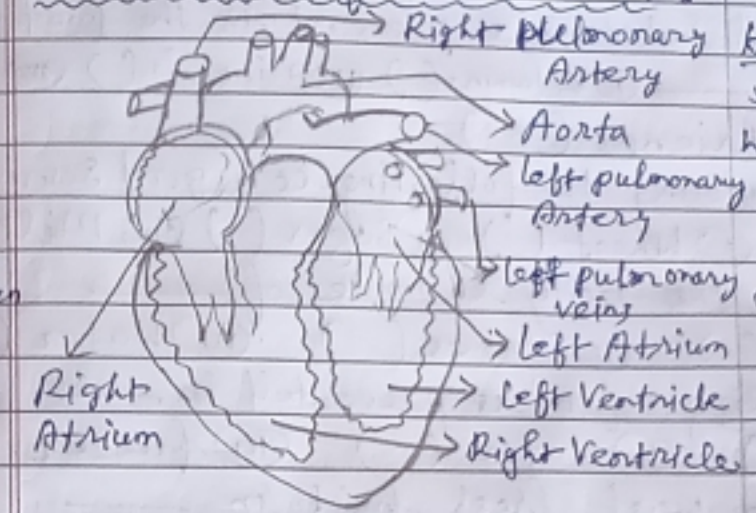 Right plelmonary
Artery
Aorta
left pulmonary
Artery
left pulmonary
veins
Left Atrium
Left Ventricle
Right Ventricle
Right
Atrium